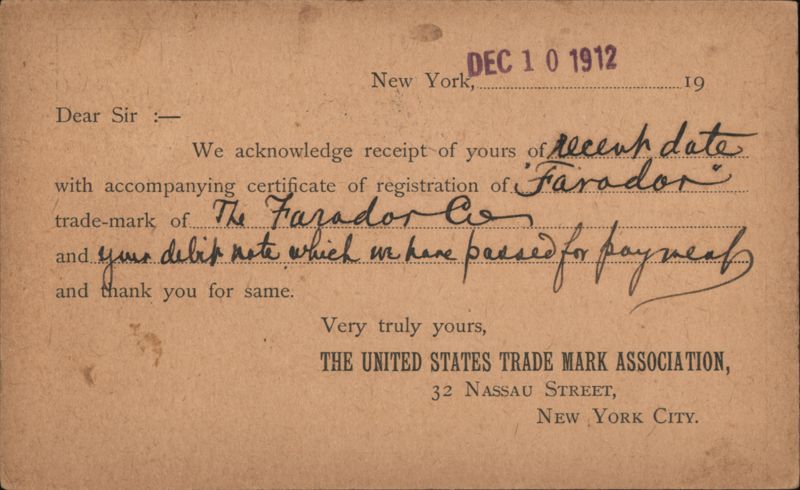 New York, DEC 10 1912 19
Dear Sir :—
We acknowledge receipt of yours of recent date
with accompanying certificate of registration of "Farador"
trade-mark of The Farador Co
and your debit note which we have passed for payment
and thank you for same.
Very truly yours,
THE UNITED STATES TRADE MARK ASSOCIATION,
32 NASSAU STREET,
NEW YORK CITY.